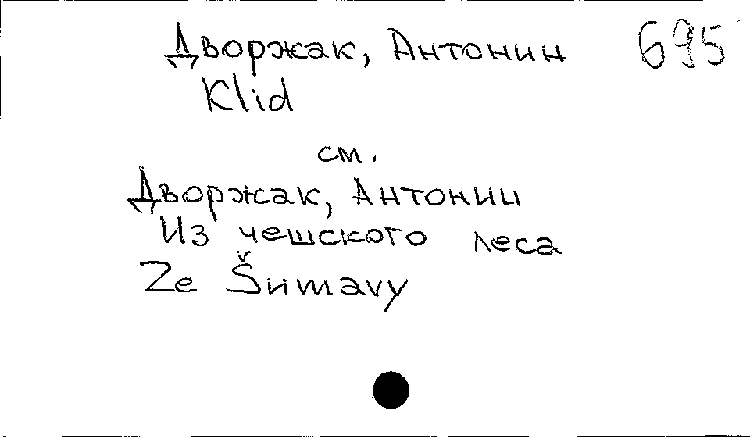 Дворжак, Антонин 695
Klid
см.
Дворжак, Антонин
Из чешского леса
Ze Šumavy